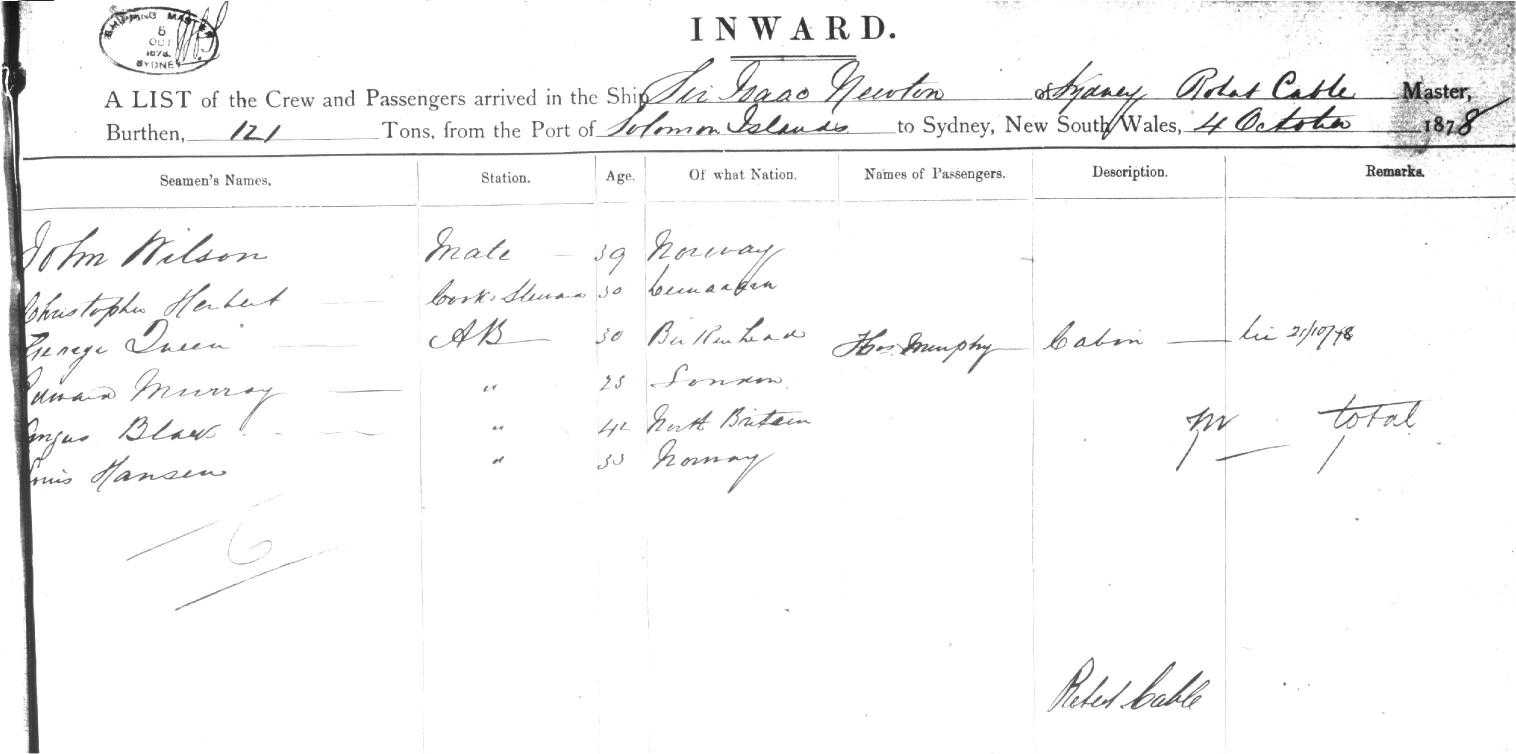 SHIPPING MASTER
5
OCT
1878.
SYDNEY
INWARD.
A LIST of the Crew and Passengers arrived in the Ship Sir Isaac Newton of Sydney Robert Cable Master,
Burthen, 121 Tons, from the Port of Solomon Islands to Sydney, New South Wales, 4 October 1878
Seamen's Names. Station. Age. Of what Nation. Names of Passengers. Description. Remarks.
John Wilson Mate 39 Norway
Christopher Herbert Cook & Steward 30
George Queen AB 30 Birkenhead Thos Murphy Cabin 21/10/78
Edward Murray " 25 London
Angus Black " 42 North Britain total
Louis Hansen " 33 Norway
6
Robert Cable